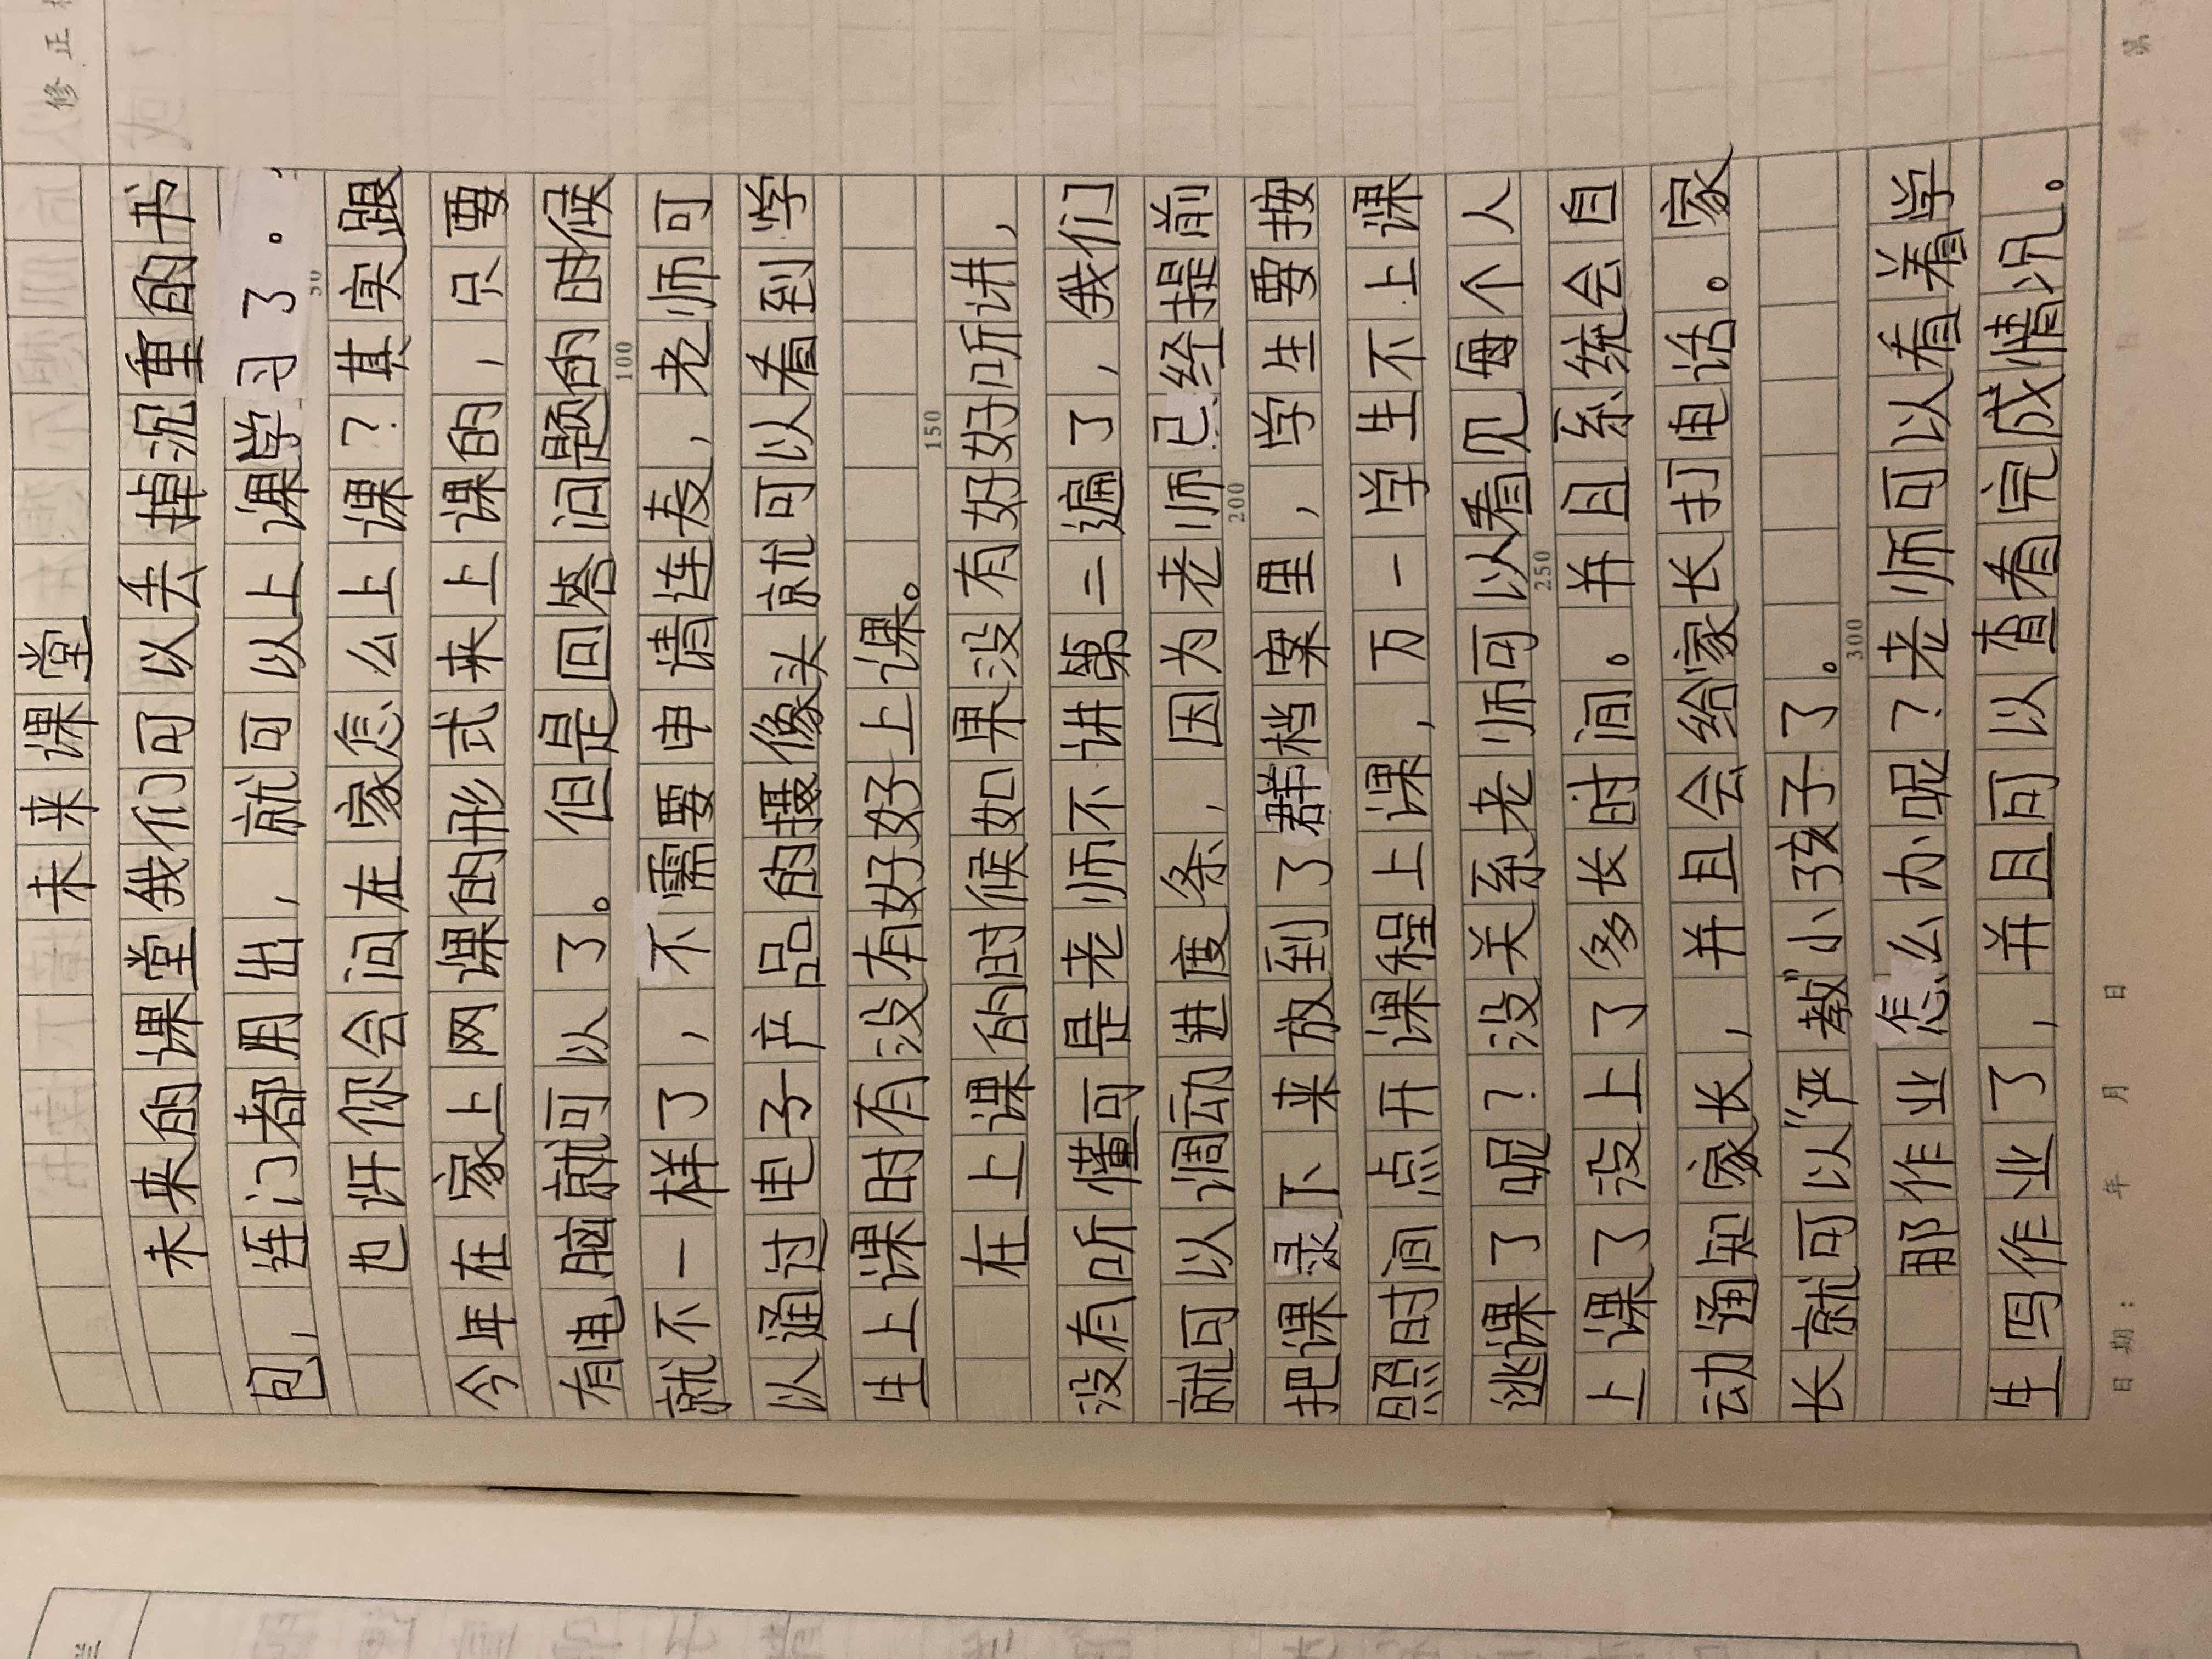 修正
未来课堂
未来的课堂我们可以丢掉沉重的书
包，连门都用出，就可以上课学习了。
50
也许你会问在家怎么上课？其实跟
今年在家上网课的形式来上课的，只要
有电脑就可以了。但是回答问题的时候
100
就不一样了，不需要申请连麦，老师可
以通过电子产品的摄像头就可以看到学
生上课时有没有好好上课。
150
在上课的时候如果没有好好听讲，
没有听懂可是老师不讲第二遍了，我们
就可以调动进度条，因为老师已经提前
200
把课录下来放到了群档案里，学生要按
照时间点开课程上课，万一学生不上课
逃课了呢？没关系老师可以看见每个人
250
上课了没上了多长时间。并且系统会自
动通知家长，并且会给家长打电话。家
长就可以“严教”小孩子了。
300
那作业怎么办呢？老师可以看着学
生写作业了，并且可以查看完成情况。
日期： 年 月 日
第